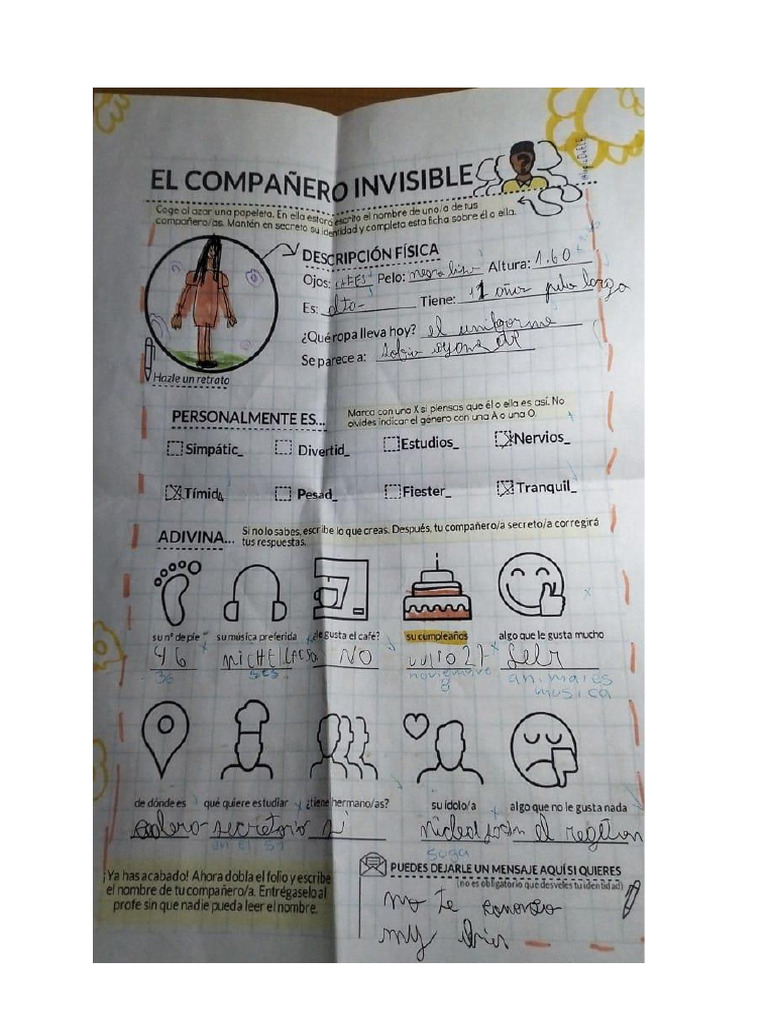 EL COMPAÑERO INVISIBLE
Coge al azar una papeleta. En ella estará escrito el nombre de uno/a de tus
compañero/as. Mantén en secreto su identidad y completa esta ficha sobre él o ella.
DESCRIPCIÓN FÍSICA
Ojos: CAFES Pelo: negro liso Altura: 1.60
Es: alta Tiene: 11 años pelo largo
¿Qué ropa lleva hoy? el uniforme
Se parece a:
Hazle un retrato
PERSONALMENTE ES...
Marca con una X si piensas que él o ella es así. No
olvides indicar el género con una A o una O.
Simpátic_ Divertid_ Estudios_ X Nervios_
X Tímida Pesad_ Fiester_ X Tranquil_
ADIVINA...
Si no lo sabes, escribe lo que creas. Después, tu compañero/a secreto/a corregirá
tus respuestas.
su nº de pie su música preferida ¿le gusta el café? su cumpleaños algo que le gusta mucho
46 NO julio 27 Leer
36 noviembre animales
8 musica
de dónde es qué quiere estudiar ¿tiene hermano/as? su ídolo/a algo que no le gusta nada
secretorio si el
suga
¡Ya has acabado! Ahora dobla el folio y escribe
el nombre de tu compañero/a. Entrégaselo al
profe sin que nadie pueda leer el nombre.
PUEDES DEJARLE UN MENSAJE AQUÍ SI QUIERES
(no es obligatorio que desveles tu identidad)
no te conosco
my bien